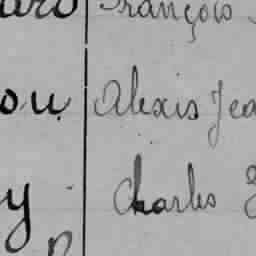 François
ou Alexis Jea
y Charles